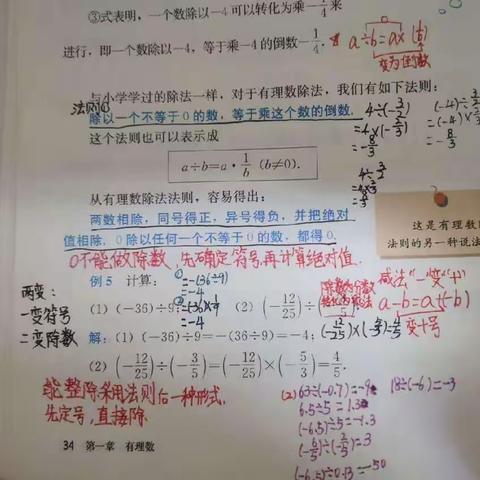 ③式表明,一个数除以-4可以转化为乘-1/4来
进行,即一个数除以-4,等于乘-4的倒数-1/4.
a÷b=a×(1/b)
变为倒数
与小学学过的除法一样,对于有理数除法,我们有如下法则:
法则①
除以一个不等于0的数,等于乘这个数的倒数.
这个法则也可以表示成
a÷b=a·1/b (b≠0).
4÷(-3/2)
=4×(-2/3)
=-8/3
(-4)÷3/2
=(-4)×
=-8/3
4÷3/2
从有理数除法法则,容易得出:
两数相除,同号得正,异号得负,并把绝对
值相除. 0除以任何一个不等于0的数,都得0.
这是有理数
法则的另一种说法
0不能做除数,先确定符号,再计算绝对值.
例5 计算:
①=-(36÷9)
=-4
(1) (-36)÷9;
②=(-36)×1/9
=-4
(2) (-12/25)÷
除数为分数
转化为乘法
(-12/25)×(-5/3)=4/5
减法"-"变"+"
a-b=a+(-b)
变+号
两变:
一变符号
二变除数
解:(1) (-36)÷9=-(36÷9)=-4;
(2) (-12/25)÷(-3/5)=(-12/25)×(-5/3)=4/5.
能整除采用法则后一种形式,
先定号,直接除.
(2) 63÷(-0.7)=-9
18÷(-6)=-3
6.5÷5=1.3
(-6.5)÷5=-1.3
(-6/5)÷(-2/5)=3
(-6.5)÷0.13=-50
34 第一章 有理数